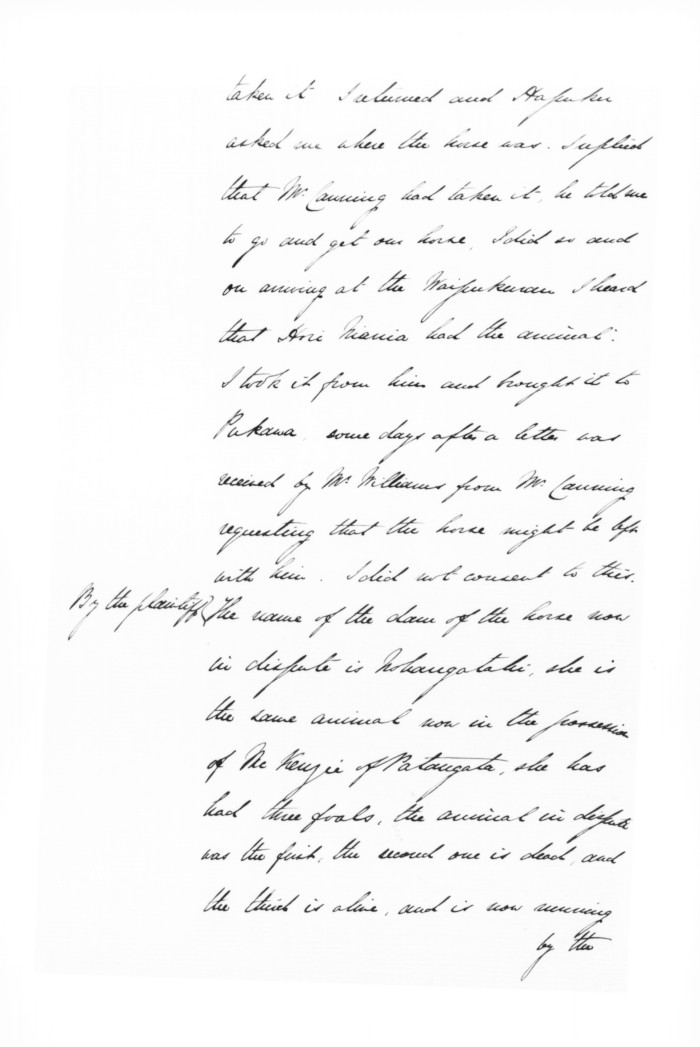 taken it I returned and Hapuku
asked me where the horse was. I replied
that Mr. Canning had taken it, he told me
to go and get our horse, I did so and
on arriving at the Waipukurau I heard
that Hori Niania had the animal.
I took it from him and brought it to
Pukawa, some days after a letter was
received by Mr. Williams from Mr. Canning
requesting that the horse might be left
with him. I did not consent to this.
By the plaintiff { The name of the dam of the horse now
in dispute is, she is
the same animal now in the possession
of McKenzie of Patangata, she has
had three foals, the animal in dispute
was the first, the second one is dead, and
the third is alive, and is now running
by the